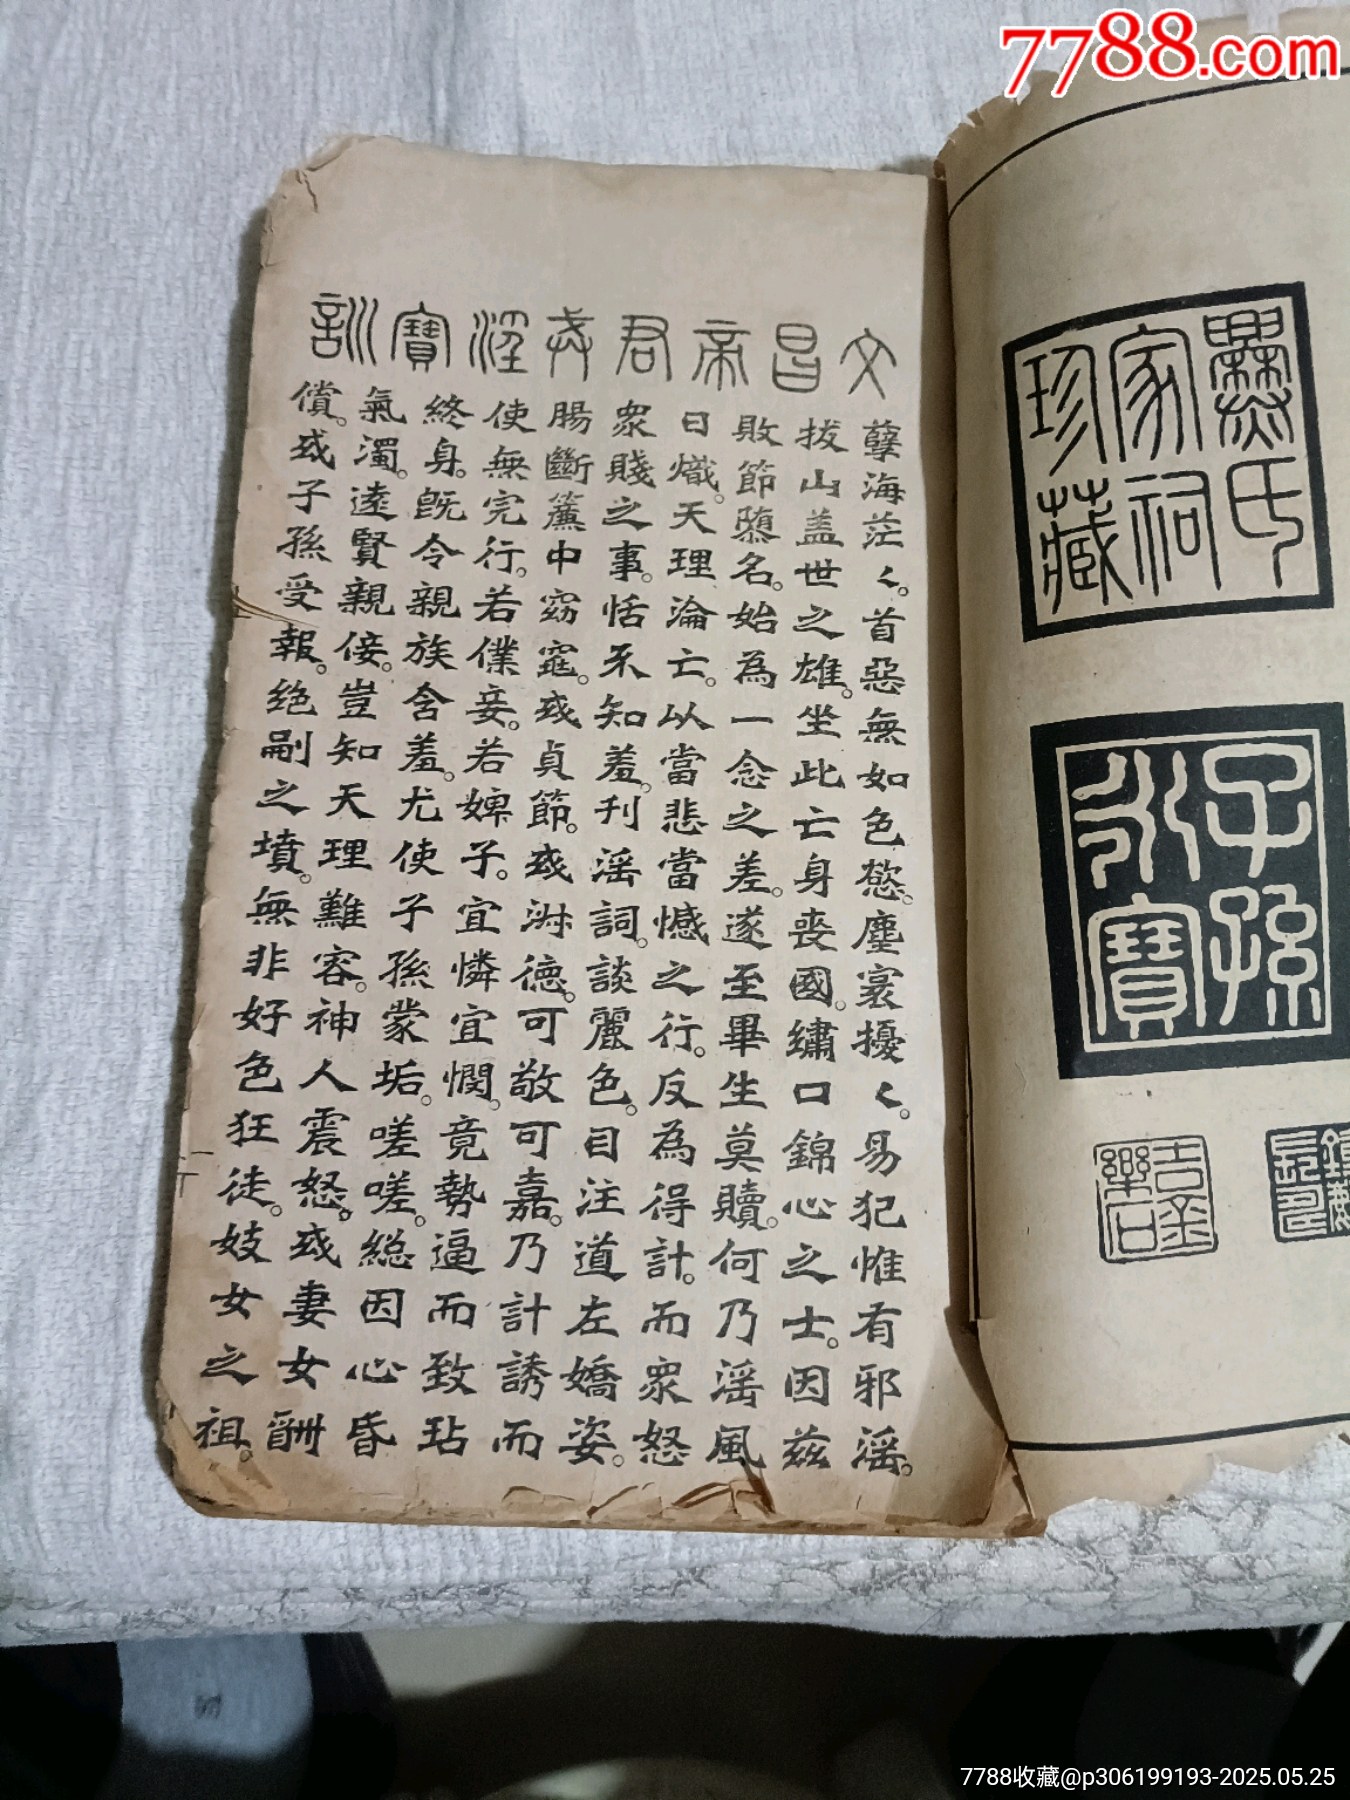 7788.com
爨氏
家祠
珍藏
子孫
永寶
吉金
樂石
文昌帝君戒淫寶訓
孽海茫〻。首惡無如色慾。塵寰擾〻。易犯惟有邪淫。
拔山蓋世之雄。坐此亡身喪國。繡口錦心之士。因茲
敗節隳名。始為一念之差。遂至畢生莫贖。何乃淫風
日熾。天理淪亡。以當悲當憾之行。反為得計。而眾怒
眾賤之事。恬不知羞。刊淫詞。談麗色。目注道左嬌姿。
腸斷簾中窈窕。或貞節。或淑德。可敬可嘉。乃計誘而
使無完行。若僕妾。若婢子。宜憐宜憫。竟勢逼而致玷
終身。既令親族含羞。尤使子孫蒙垢。嗟嗟。總因心昏
氣濁。遠賢親佞。豈知天理難容。神人震怒。或妻女酬
償。或子孫受報。絕嗣之墳。無非好色狂徒。妓女之祖。
7788收藏@p306199193-2025.05.25